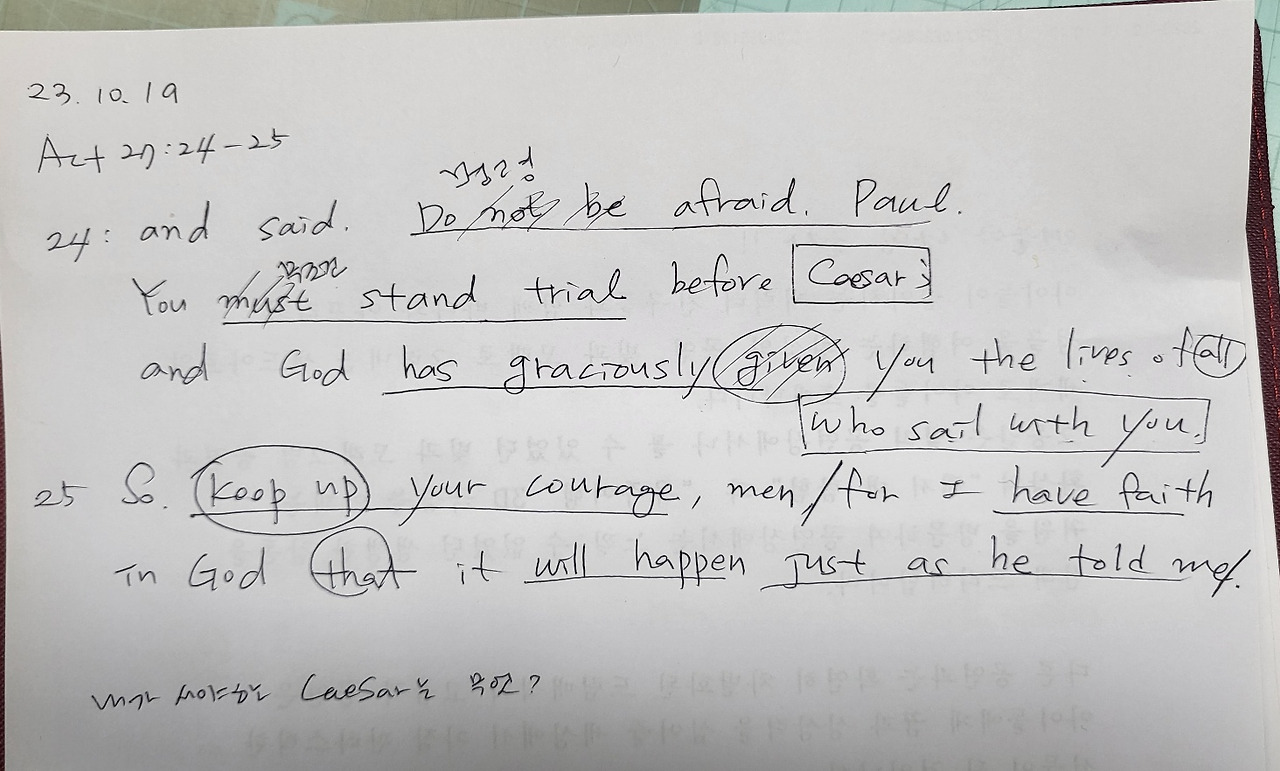 23. 10. 19
Act 27:24-25
명령형
24: and said. Do not be afraid. Paul.
무조건
You must stand trial before Caesar;
and God has graciously given you the lives of all
who sail with you.
25 So. keep up your courage, men/for I have faith
in God that it will happen just as he told me/.
내가 서야하는 Caesar는 무엇?